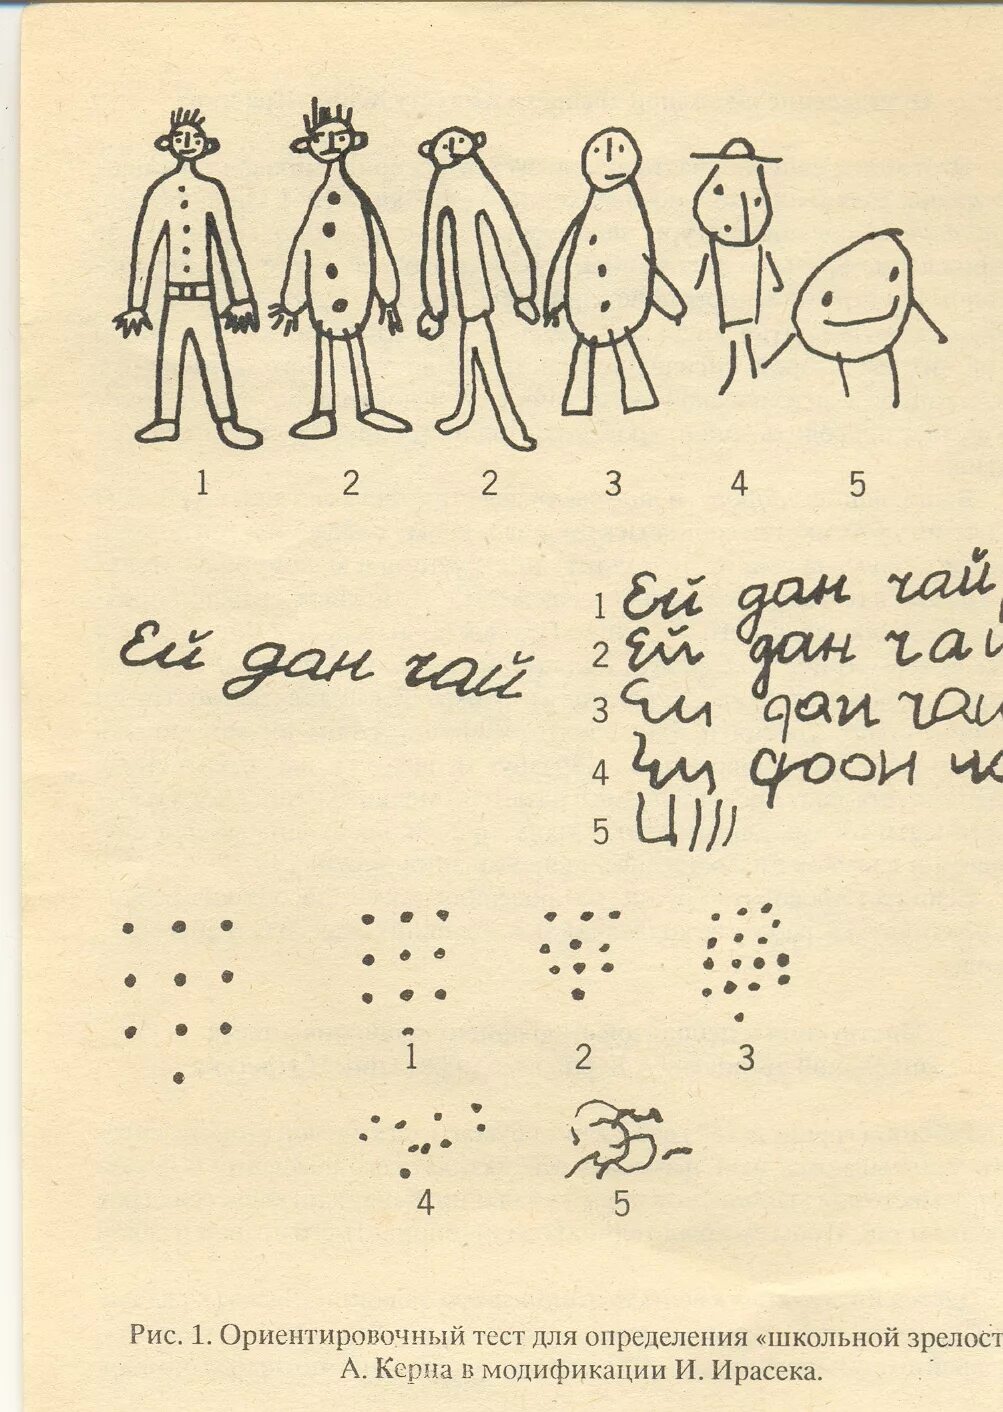 1 2 2 3 4 5
Ей дан чай
1 Ей дан чай
2 Ей дан чай
3 Еи дан чаи
4
5 Ц)))
1 2 3
4 5
Рис. 1. Ориентировочный тест для определения «школьной зрелост
А. Керна в модификации И. Ирасека.